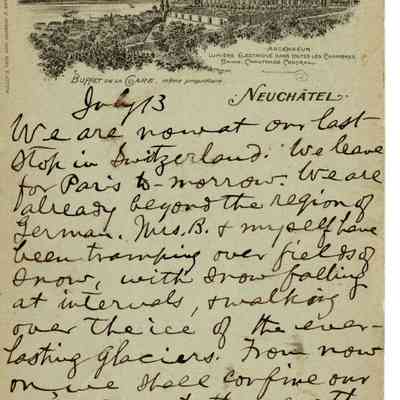 ASCENSEUR
LUMIÈRE ÉLECTRIQUE DANS TOUTES LES CHAMBRES
BAINS, CHAUFFAGE CENTRAL
BUFFET DE LA GARE, même propriétaire
NEUCHÂTEL
July 13
We are now at our last
stop in Switzerland. We leave
for Paris to-morrow. We are
already beyond the region of
German. Mrs. B. & myself have
been tramping over fields of
snow, with snow falling
at intervals, & walking
over the ice of the ever-
lasting Glaciers. From now
on, we shall confine our